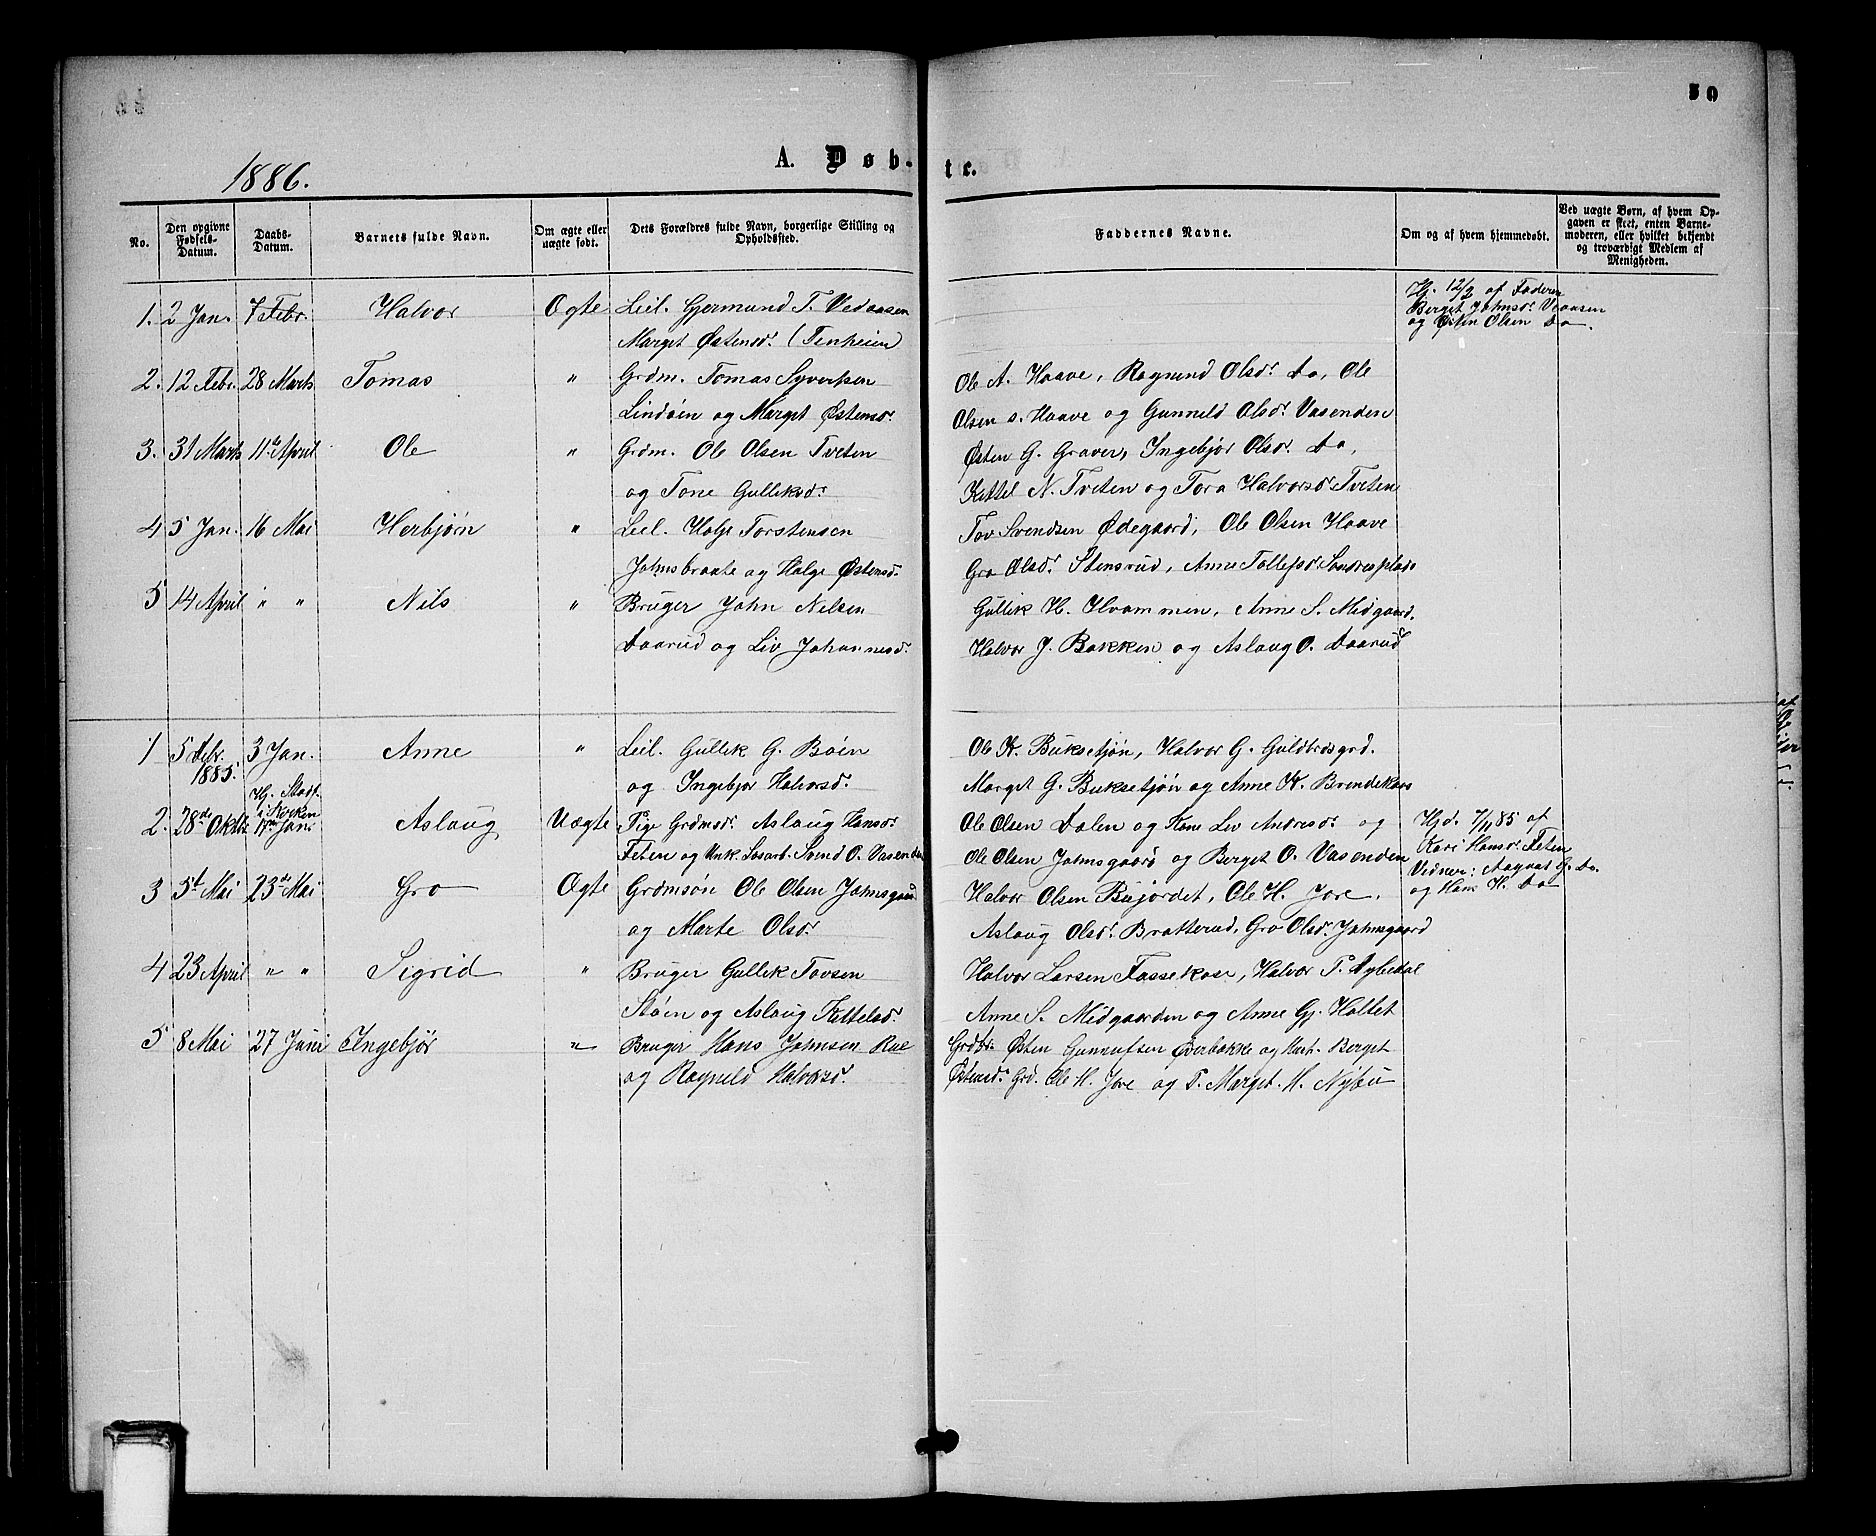 50
1886.
A. Døb-
te.
No.
Den opgivne Fødsels-Datum.
Daabs-Datum.
Barnets fulde Navn.
Om ægte eller uægte født.
Dets Forældres fulde Navn, borgerlige Stilling og Opholdssted.
Faddernes Navne.
Om og af hvem hjemmedøbt.
Ved uægte Børn, af hvem Opgaven er skeet, enten Barnemoderen, eller hvilket bekjendt og troværdigt Medlem af Menigheden.
1. 2 Jan. 7 Febr. Halvor Ægte Leil. Gjermund T. Vedaasen
Marget Østensd. (Tenheien)
Hj. 12/2 af Faderen
Berget Johnsdr.
og Østen Olsen Do.
2. 12 Febr. 28 Marts Tomas " Grdm. Tomas Syvertsen Ole A. Haave, Ragnund Olsdr. Do, Ole
Lindøin og Marget Østensdr. Olsen s. Haave og Gunneld Olsdr. Vasenden
3. 31 Marts 11te April Ole " Grdm. Ole Olsen Tveten Østen G. Graver, Ingebjør Olsdr. Do,
og Tone Gulleksdr. Kittel N. Tveten og Tora Halvorsdr. Tveten
4 5 Jan. 16 Mai Herbjørn " Leil. Holje Torstensen Tov Svendsen Ødegaard, Ole Olsen Haave
Johnsbraate og Helge Østensd. Gro Olsdr. Stensrud, Anne Tollefsdr.
5 14 April " " Nils " Bruger John Nilsen Gullik H. Hvammen, Anne S. Midgaard.
Daarud og Liv Johannesd. Halvor J. Bakken og Aslaug O. Daarud
1 5 Febr. 3 Jan. Anne " Leil. Gullik G. Bøen Ole K. Buksetjøn, Halvor G. Guldbrdsgrd.
1885. og Ingebjør Halvorsd. Marget G. Buksetjøn og Anne K. Brendekaas
Hj. Stadf.
i Kirken
2. 28de Oktbr. 17de Jan. Aslaug Uægte Pige Grdmsdr. Aslaug Hansdr. Ole Olsen Dalen og Kone Liv Andresdr. og Hjd. 7/11 85 af
Feten og Unk. Losarb. Svend O. Vasenden Ole Olsen Johnsgaard og Berget O. Vasenden Kari Hansdr. Feten
Vidner: Aagnat G. Do.
og Hans H. Do
3 5t Mai 23de Mai Gro Ægte Grdmsøn Ole Olsen Johnsgaard Halvor Olsen Bujordet, Ole H. Jore.
og Marte Olsdr. Aslaug Olsdr. Bratterud, Gro Olsdr. Johnsgaard
4 23 April " " Sigrid " Bruger Gullik Tovsen Halvor Larsen Fossekose, Halvor P. Dybedal
Støin og Aslaug Kittelsd. Anne S. Midgaarden og Anne Gj. Holtet
5 8 Mai 27 Juni Ingebjør " Bruger Hans Johnsen Rue Grdbr. Østen Gunnufsen Øverbakke og Hust. Berget
og Ragneld Halvorsd. Østensdr. Grd. Ole H. Jore og P. Marget H. Nybu